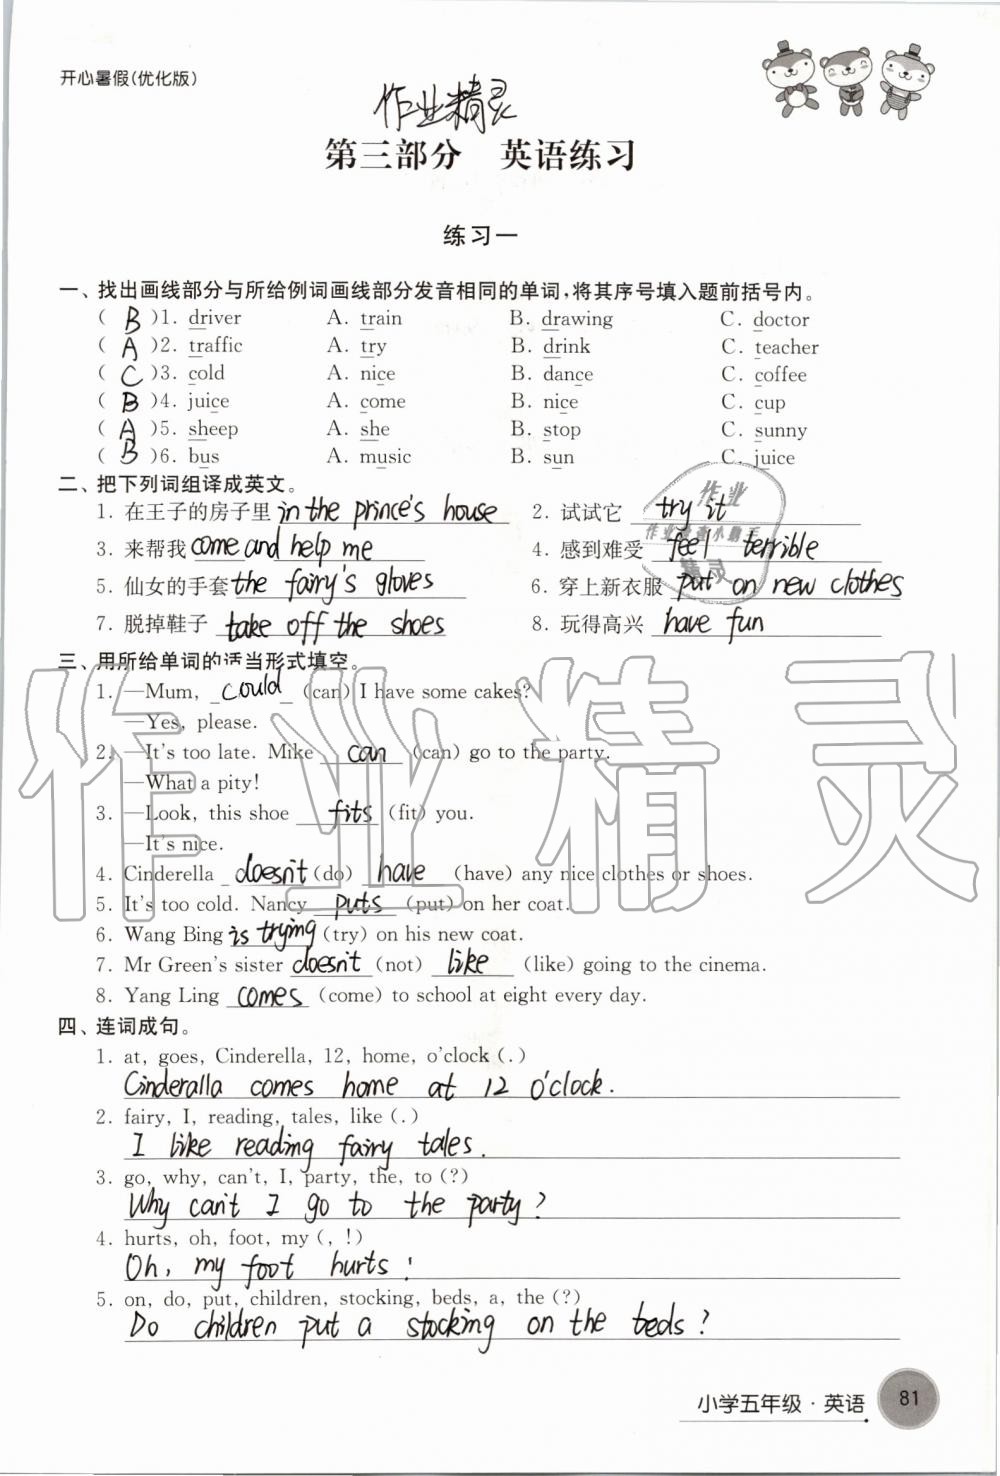 开心暑假(优化版)
作业精灵
第三部分 英语练习
练习一
一、找出画线部分与所给例词画线部分发音相同的单词,将其序号填入题前括号内。
( B )1. driver A. train B. drawing C. doctor
( A )2. traffic A. try B. drink C. teacher
( C )3. cold A. nice B. dance C. coffee
( B )4. juice A. come B. nice C. cup
( A )5. sheep A. she B. stop C. sunny
( B )6. bus A. music B. sun C. juice
二、把下列词组译成英文。
1. 在王子的房子里 in the prince's house 2. 试试它 try it
3. 来帮我 come and help me 4. 感到难受 feel terrible
5. 仙女的手套 the fairy's gloves 6. 穿上新衣服 put on new clothes
7. 脱掉鞋子 take off the shoes 8. 玩得高兴 have fun
三、用所给单词的适当形式填空。
1. —Mum, could (can) I have some cakes?
—Yes, please.
2. —It's too late. Mike can (can) go to the party.
—What a pity!
3. —Look, this shoe fits (fit) you.
—It's nice.
4. Cinderella doesn't (do) have (have) any nice clothes or shoes.
5. It's too cold. Nancy puts (put) on her coat.
6. Wang Bing is trying (try) on his new coat.
7. Mr Green's sister doesn't (not) like (like) going to the cinema.
8. Yang Ling comes (come) to school at eight every day.
四、连词成句。
1. at, goes, Cinderella, 12, home, o'clock (.)
Cinderalla comes home at 12 o'clock.
2. fairy, I, reading, tales, like (.)
I like reading fairy tales.
3. go, why, can't, I, party, the, to (?)
Why can't I go to the party?
4. hurts, oh, foot, my (, !)
Oh, my foot hurts!
5. on, do, put, children, stocking, beds, a, the (?)
Do children put a stocking on the beds?
小学五年级·英语 81
作业精灵